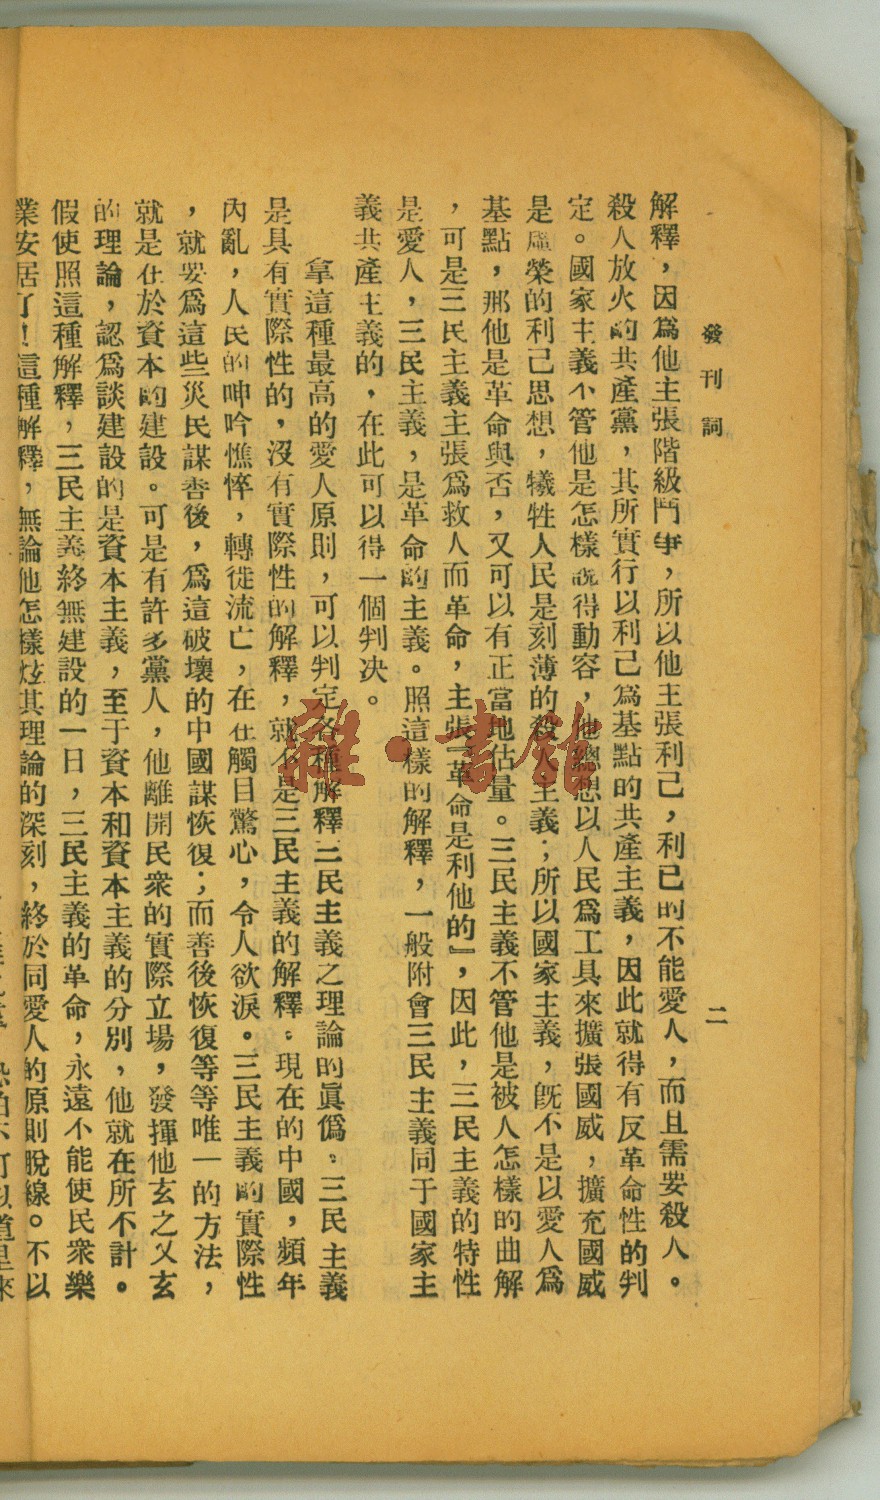 發刊詞
二
解釋，因爲他主張階級鬥爭，所以他主張利己，利己的不能愛人，而且需要殺人。
殺人放火的共產黨，其所實行以利己爲基點的共產主義，因此就得有反革命性的判
定。國家主義不管他是怎樣說得動容，他總想以人民爲工具來擴張國威，擴充國威
是虛榮的利己思想，犧牲人民是刻薄的殺人主義；所以國家主義，旣不是以愛人爲
基點，那他是革命與否，又可以有正當地估量。三民主義不管他是被人怎樣的曲解
，可是三民主義主張爲救人而革命，主張『革命是利他的』，因此，三民主義的特性
是愛人，三民主義，是革命的主義。照這樣的解釋，一般附會三民主義同于國家主
義共產主義的，在此可以得一個判决。
拿這種最高的愛人原則，可以判定各種解釋三民主義之理論的眞僞。三民主義
是具有實際性的，沒有實際性的解釋，就不是三民主義的解釋。現在的中國，頻年
內亂，人民的呻吟憔悴，轉徙流亡，在在觸目驚心，令人欲淚。三民主義的實際性
，就要爲這些災民謀善後，爲這破壞的中國謀恢復；而善後恢復等等唯一的方法，
就是在於資本的建設。可是有許多黨人，他離開民衆的實際立場，發揮他玄之又玄
的理論，認爲談建設的是資本主義，至于資本和資本主義的分別，他就在所不計。
假使照這種解釋，三民主義終無建設的一日，三民主義的革命，永遠不能使民衆樂
業安居了！這種解釋，無論他怎樣炫其理論的深刻，終於同愛人的原則脫線。不以
雜·書館